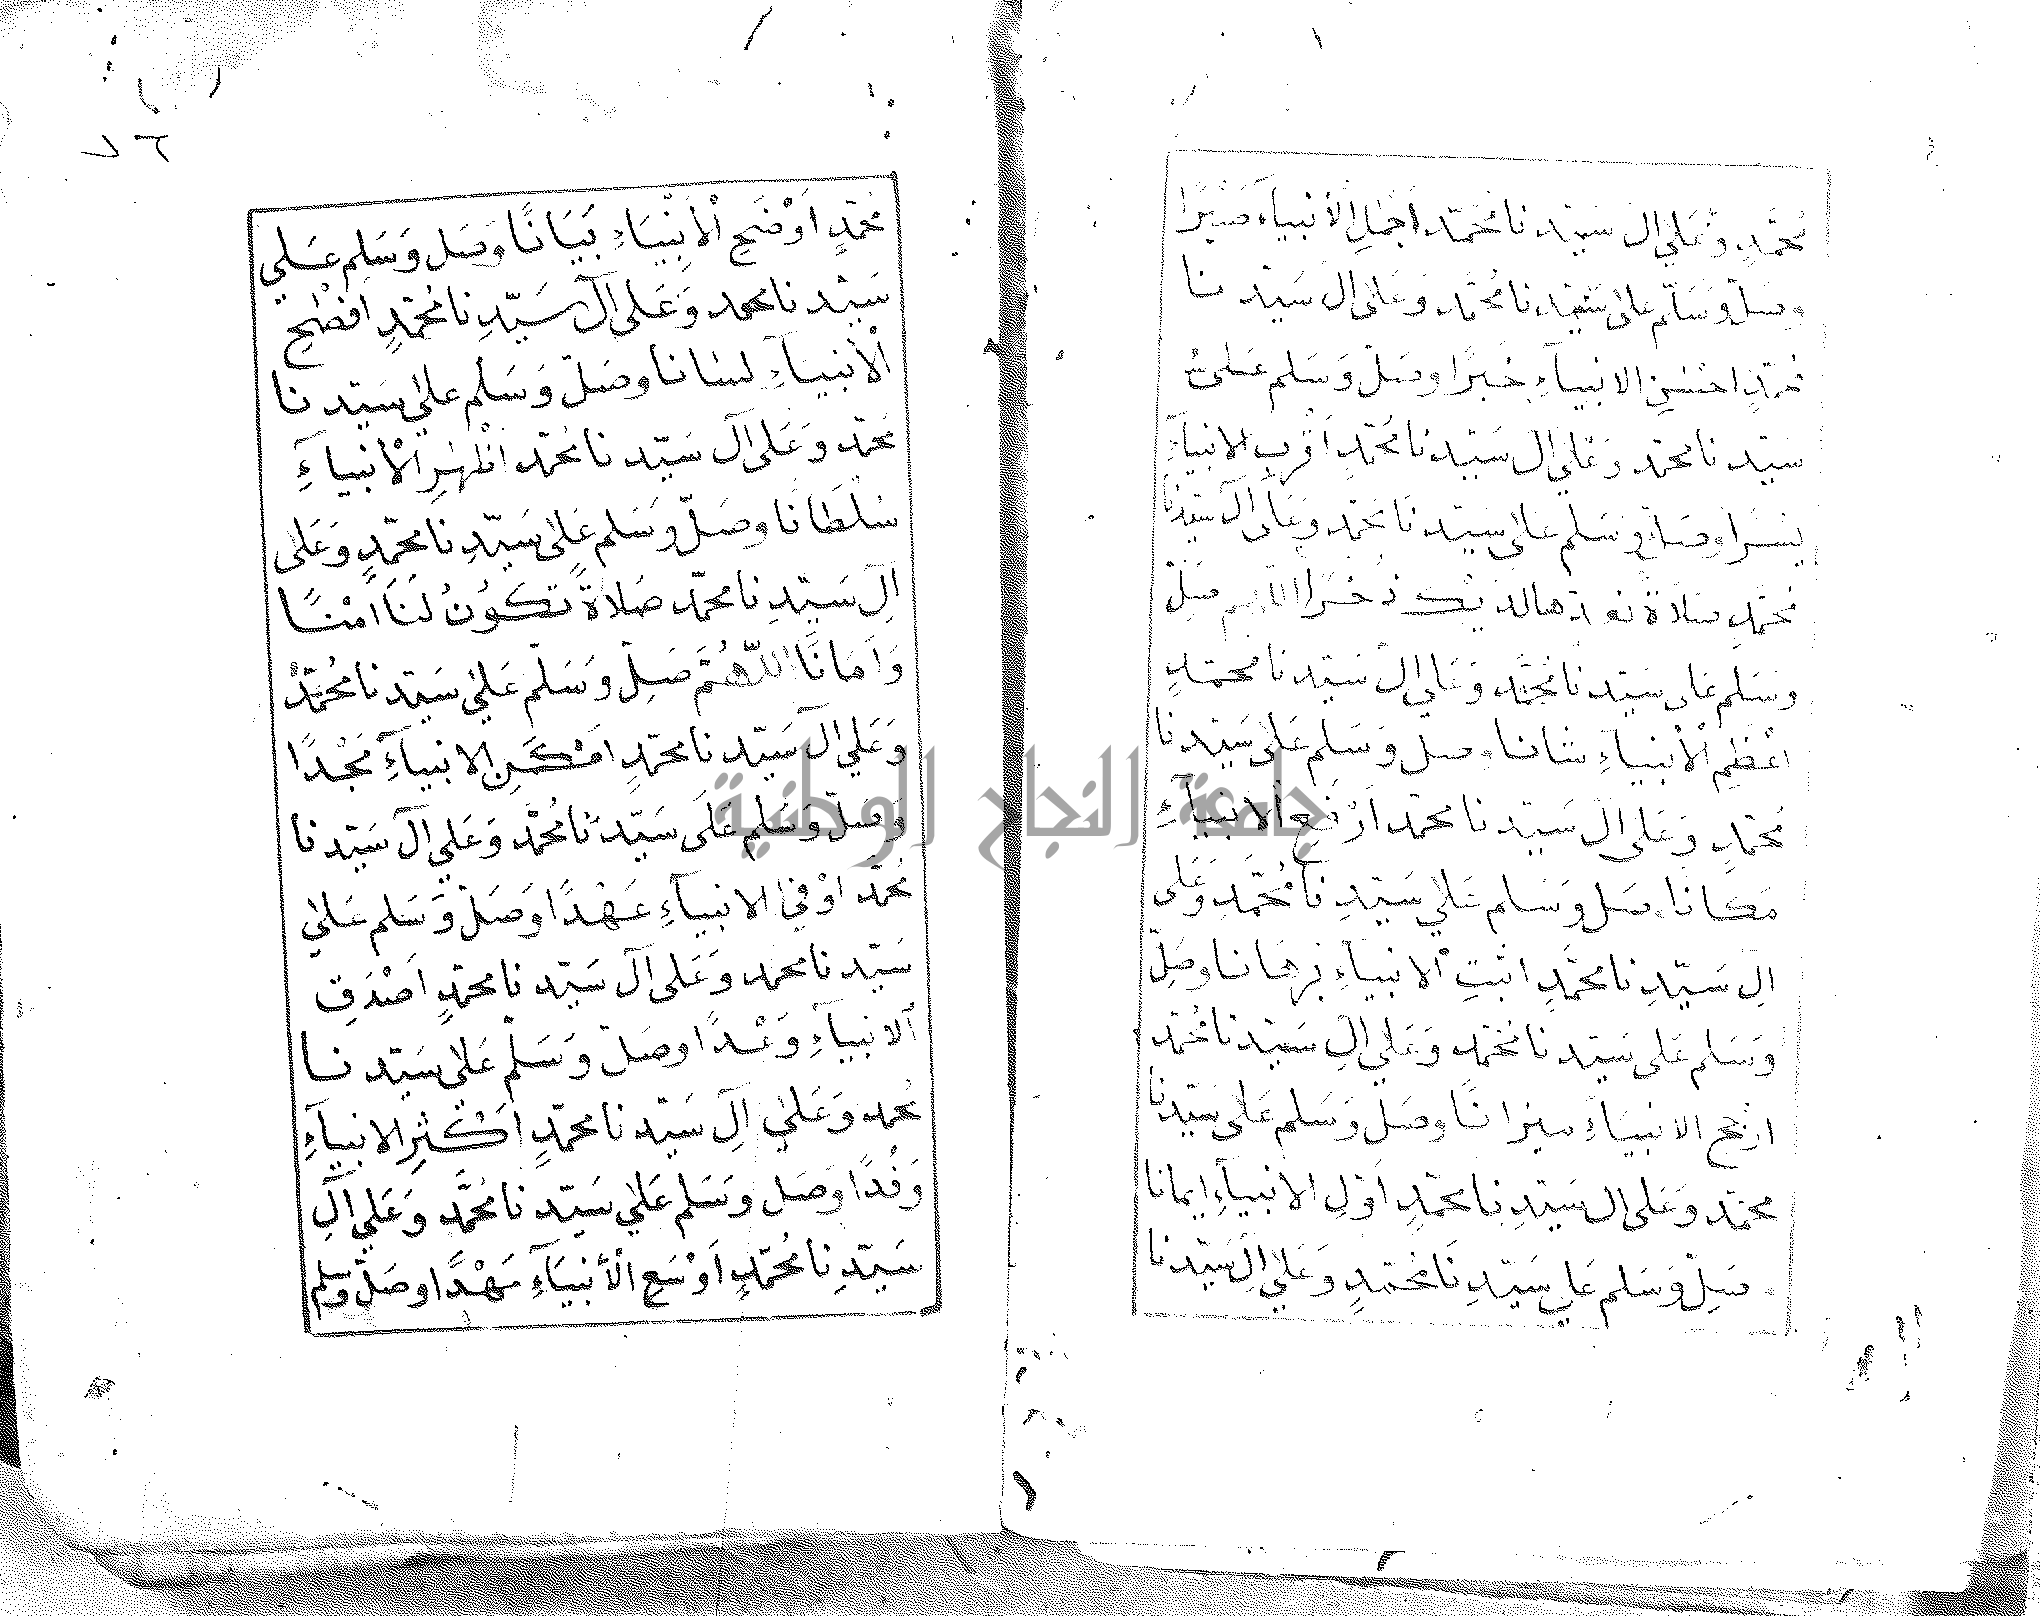 محمد وعلى ال سيدنا محمد اجمل الأنبياء صبرا
وصل وسلم على سيدنا محمد وعلى ال سيدنا
محمد احسن الانبياء خبرا وصل وسلم على
سيدنا محمد وعلى ال سيدنا محمد اقرب الانبياء
يسرا وصل وسلم على سيدنا محمد وعلى ال سيدنا
محمد صلاة نعدها لديك ذخرا اللهم صل
وسلم على سيدنا محمد وعلى ال سيدنا محمد
اعظم الأنبياء شانا وصل وسلم على سيدنا
محمد وعلى ال سيدنا محمد ارفع الانبياء
مكانا وصل وسلم على سيدنا محمد وعلى
ال سيدنا محمد اثبت الانبياء برهانا وصل
وسلم على سيدنا محمد وعلى ال سيدنا محمد
ارجح الانبياء ميزانا وصل وسلم على سيدنا
محمد وعلى ال سيدنا محمد اول الانبياء ايمانا
وصل وسلم على سيدنا محمد وعلى ال سيدنا
٧٦
محمد اوضح الأنبياء بيانا وصل وسلم على
سيدنا محمد وعلى آل سيدنا محمد افصح
الأنبياء لسانا وصل وسلم على سيدنا
محمد وعلى آل سيدنا محمد اظهر الأنبياء
سلطانا وصل وسلم على سيدنا محمد وعلى
آل سيدنا محمد صلاة تكون لنا امنا
وامانا اللهم صل وسلم على سيدنا محمد
وعلى آل سيدنا محمد امكن الانبياء مجدا
وصل وسلم على سيدنا محمد وعلى آل سيدنا
محمد اوفى الانبياء عهدا وصل وسلم على
سيدنا محمد وعلى آل سيدنا محمد اصدق
الانبياء وعدا وصل وسلم على سيدنا
محمد وعلى ال سيدنا محمد اكثر الانبياء
وفدا وصل وسلم على سيدنا محمد وعلى آل
سيدنا محمد اوسع الأنبياء مهدا وصل وسلم
جامعة النجاح الوطنية